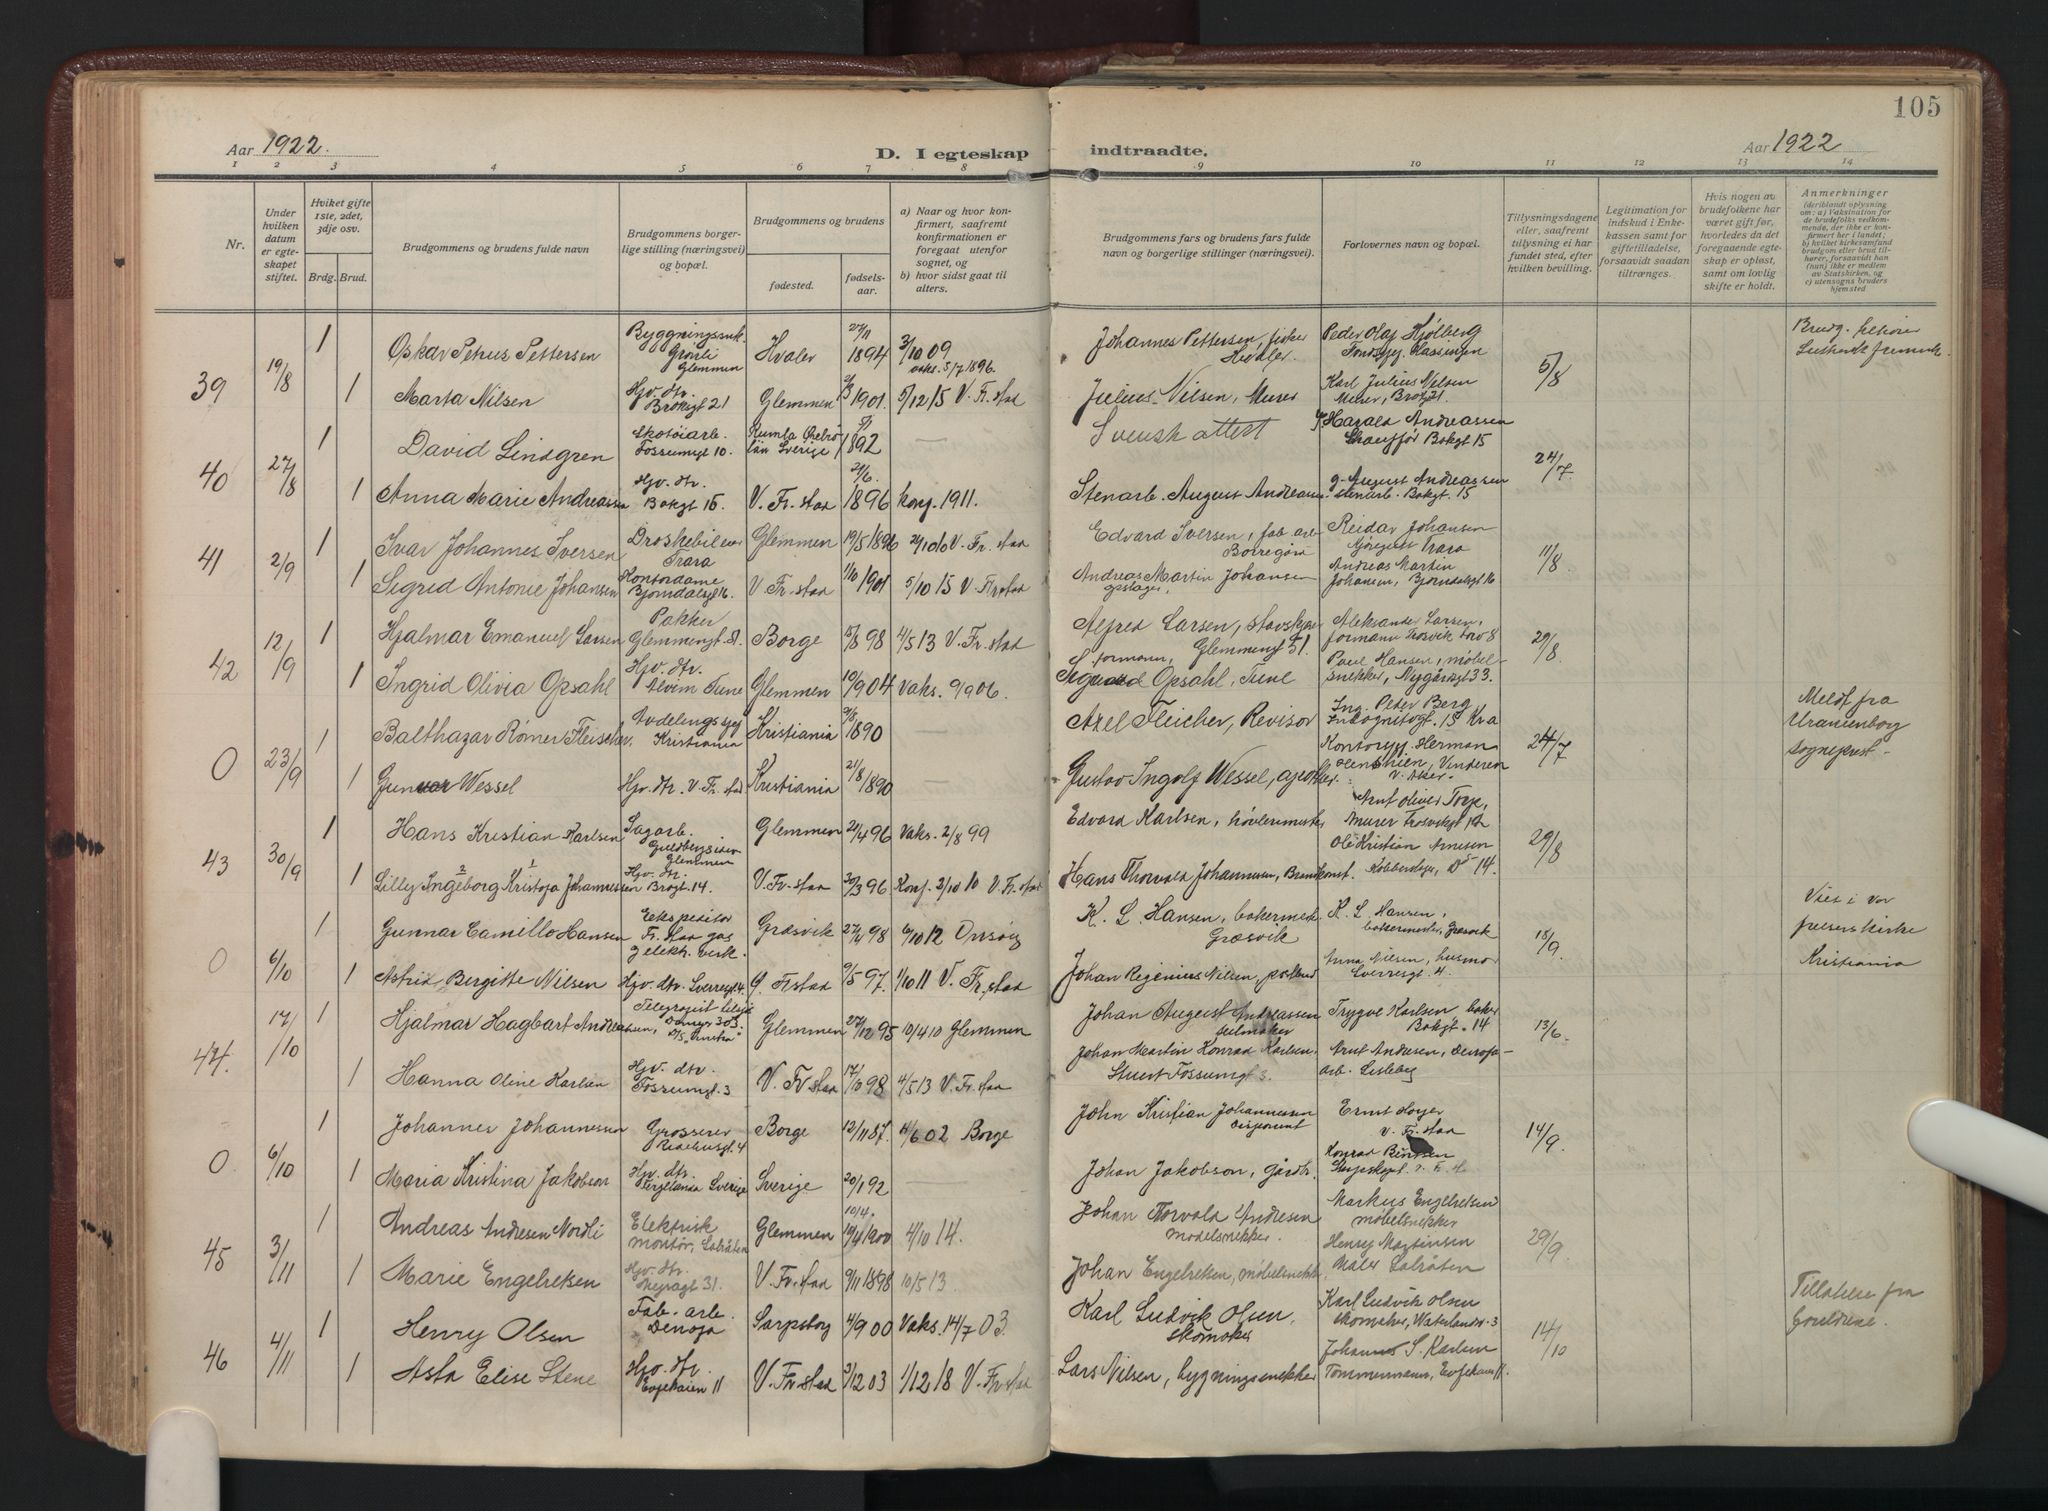 105
Aar 1922.
D. I egteskap
indtraadte.
Aar 1922
1 2 3 4 5 6 7 8 9 10 11 12 13 14
Nr.
Under hvilken datum er egteskapet stiftet.
Hviket gifte 1ste, 2det, 3dje osv.
Brdg. Brud.
Brudgommens og brudens fulde navn
Brudgommens borgerlige stilling (næringsvei) og bopæl.
Brudgommens og brudens
fødested.
fødselsaar.
a) Naar og hvor konfirmert, saafremt konfirmationen er foregaat utenfor sognet, og
b) hvor sidst gaat til alters.
Brudgommens fars og brudens fars fulde navn og borgerlige stillinger (næringsvei).
Forlovernes navn og bopæl.
Tillysningsdagene eller, saafremt tillysning ei har fundet sted, efter hvilken bevilling.
Legitimation for indskud i Enkekassen samt for giftetilladelse, forsaavidt saadan tiltrænges.
Hvis nogen av brudefolkene har været gift før, hvorledes da det foregaaende egteskap er opløst, samt om lovlig skifte er holdt.
Anmerkninger
(deriblandt oplysning om: a) Vaksination for de brudefolks vedkommende, der ikke er konfirmert her i landet; b) hvilket kirkesamfund brudgom eller brud tilhører, forsaavidt han (hun) ikke er medlem av Statskirken, og c) utensogns bruders hjemsted
39 19/8 1 Oskar Petrus Pettersen Glemmen Hvaler 27/11 1894 3/10 09 vaks. 5/7 1896. Johannes Pettersen, fisker Peder Olaf Hjølberg
1 Marta Nilsen Hjv. dtr. Brøksgt 21 Glemmen 2/3 1901. 5/12 15 V. Fr. stad Julius Nilsen, Murer Karl Julius Nilsen Murer, 5/8
40 27/8 1 David Lindgren Skotøiarb. Fossumgt 10. Kumla Ørebro län Sverige 1892 — Svensk attest Harald Andreassen Bakgt 15
1 Anna Marie Andreassen Hjv. dtr. Bakgt 15. V. Fr. stad 21/6. 1896 konf. 1911. Stenarb. August Andreassen August Andreassen stenarb. Bakgt. 15 24/7
41 2/9 1 Ivar Johannes Iversen Trara Glemmen 19/5 1896 V. Fr. stad Edvard Iversen, fab. arb. Reidar Johansen Trara
1 Sigrid Antonie Johansen Kontordame Bjørndalsgt 16. V. Fr. stad 1/10 1901 5/10 15 V. Fr. stad Andreas Martin Johansen Andreas Martin Johansen, Bjørndalsgt 16 11/8
42 12/9 1 Hjalmar Emanuel Larsen Pakker Glemmengt. 51. Borge 15/8 98 4/5 13 V. Fr. stad Alfred Larsen, formann, Glemmengt 51. Aleksander Larsen, formann Trosvik torv 8
1 Ingrid Olivia Opsahl Hjv. dtr. Alvim Tune Glemmen 10/9 04 Vaks. 9/9 06. Sigurd Opsahl, Tune Paul Hansen, møbelsnekker, Nygårdsgt 33. 29/8
0 23/9 1 Balthazar Rømer Fleischer, Kristiania Kristiania 1890 — Axel Fleicher, Revisor Ing. Peter Berg Incognitogt. 15 Kra Meldt fra Uranienborg sogneprest
1 Gunvor Wessel Hjv. dtr. V. Fr. stad Kristiania 21/8 1890 — Gustav Ingolf Wessel, apotheker Herman Vinderen V. Aker. 24/7
43 30/9 1 Hans Kristian Karlsen Sagarb. Glemmen Glemmen 21/4 96 Vaks. 2/8 99 Edvard Karlsen, høvlerimester Arnt Oliver Torp, Murer Trosvikgt 12
1 Lilly Ingeborg Kristofa Johannessen Hjv. dtr. Brogt. 14. V. Fr. stad 30/3 96 Konf. 2/10 10 V. Fr. stad Hans Thorvald Johannessen, Brandkonst. Ole Kristian Arnesen Do 14. 29/8
0 6/10 1 Gunnar Camillo Hansen Ekspeditør Fr. stad gas & elektr. verk. Græsvik 27/4 98 6/10 12 Onsøy K. L. Hansen, bakermester Græsvik K. L. Hansen, bakermester, Græsvik Viet i Vor frelsers kirke Kristiania
1 Astrid Bergitte Nilsen Hjv. dtr. Sverresgt 4. G. Fr.stad 9/5 97. 1/10 11 V. Fr. stad Johan Reginius Nilsen, Anna Nilsen, husmor Sverresgt. 4. 15/9
44. 17/10 1 Hjalmar Hagbart Andreassen, Glemmen 27/12 95 10/4 10 Glemmen Johan August Andreassen seilmaker Trygve Karlsen baker Bakgt. 14
1 Hanna Oline Karlsen Hjv. dtr. Fossumgt. 3 V. Fr. stad 17/10 98 4/5 13 V. Fr. stad Johan Martin Konrad Karlsen, Stuert Fossumgt 3. Arnt Andresen, Denofa-arb. Lisleby 13/6
0 6/10 1 Johannes Johannessen Grosserer Raadhusgt 4 Borge 12/11 87. 11/6 02 Borge John Kristian Johannessen disponent Ernst Høyer V. Fr. stad
1 Maria Kristina Jakobson Hjv. dtr. Sverige Sverige 20/1 92 — Johan Jakobson, gårdbr. Konrad 14/9
45 3/11 1 Andreas Andresen Nordli Elektrisk montør, Labråten Glemmen 10/4. 1900 4/10 14. Johan Torvald Andresen modelsnekker Markus Engelretsen møbelsnekker
1 Marie Engelretsen Hjv. dtr. 31. V. Fr. stad 9/11 1898 10/5 13. Johan Engelretsen, møbelsnekk. Henry Martinsen Maler Labråten 29/9
46 4/11 1 Henry Olsen Fab. arb. Denofa Sarpsborg 4/9 00 Vaks. 14/7 03. Karl Ludvik Olsen, skomaker Karl Ludvik Olsen skomaker, Waterlandsv. 3 Tillatelse fra foreldrene.
1 Asta Elise Stene Hjv. dtr. Evjekaien 11 V. Fr. stad 3/12 03 1/12 18 V. Fr. stad Lars Nilsen, bygningssnekker Johannes S. Karlsen Tømmermann, Evjekaien 11. 14/10